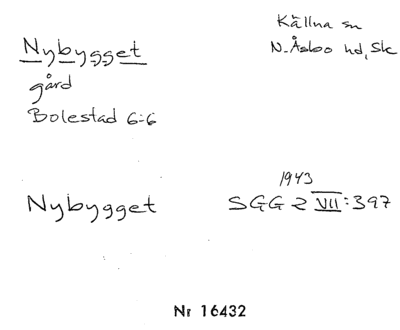 Nybygget
gård
Bolestad 6:6
Källna sn
N. Åsbo hd, Sk
Nybygget
1943
SGG 2 VII:397
Nr 16432